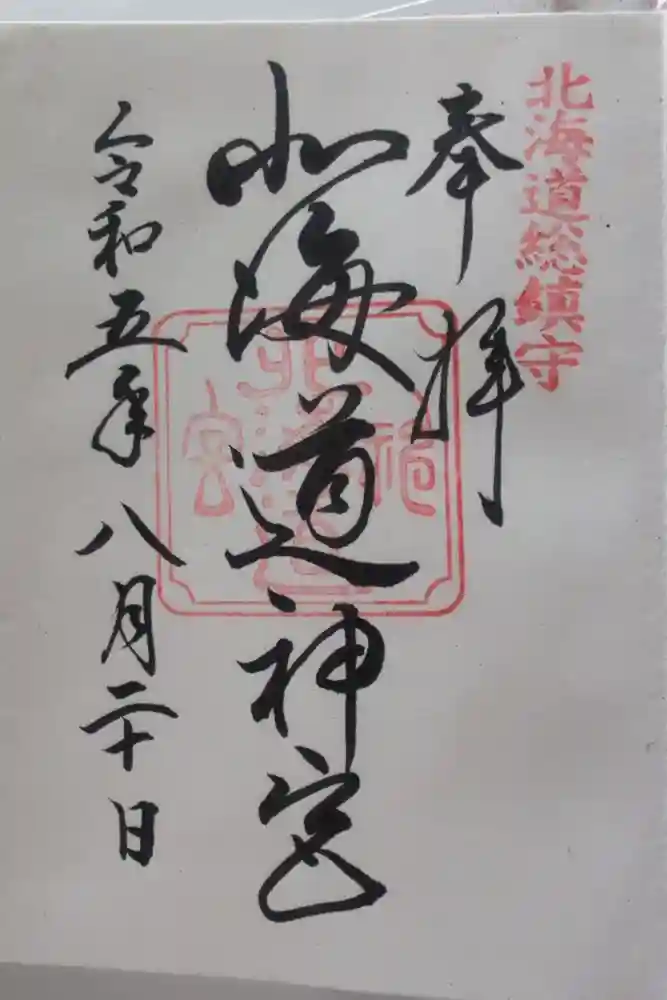 北海道総鎮守
奉拝
北海道神宮
北海道神宮
令和五年八月二十日